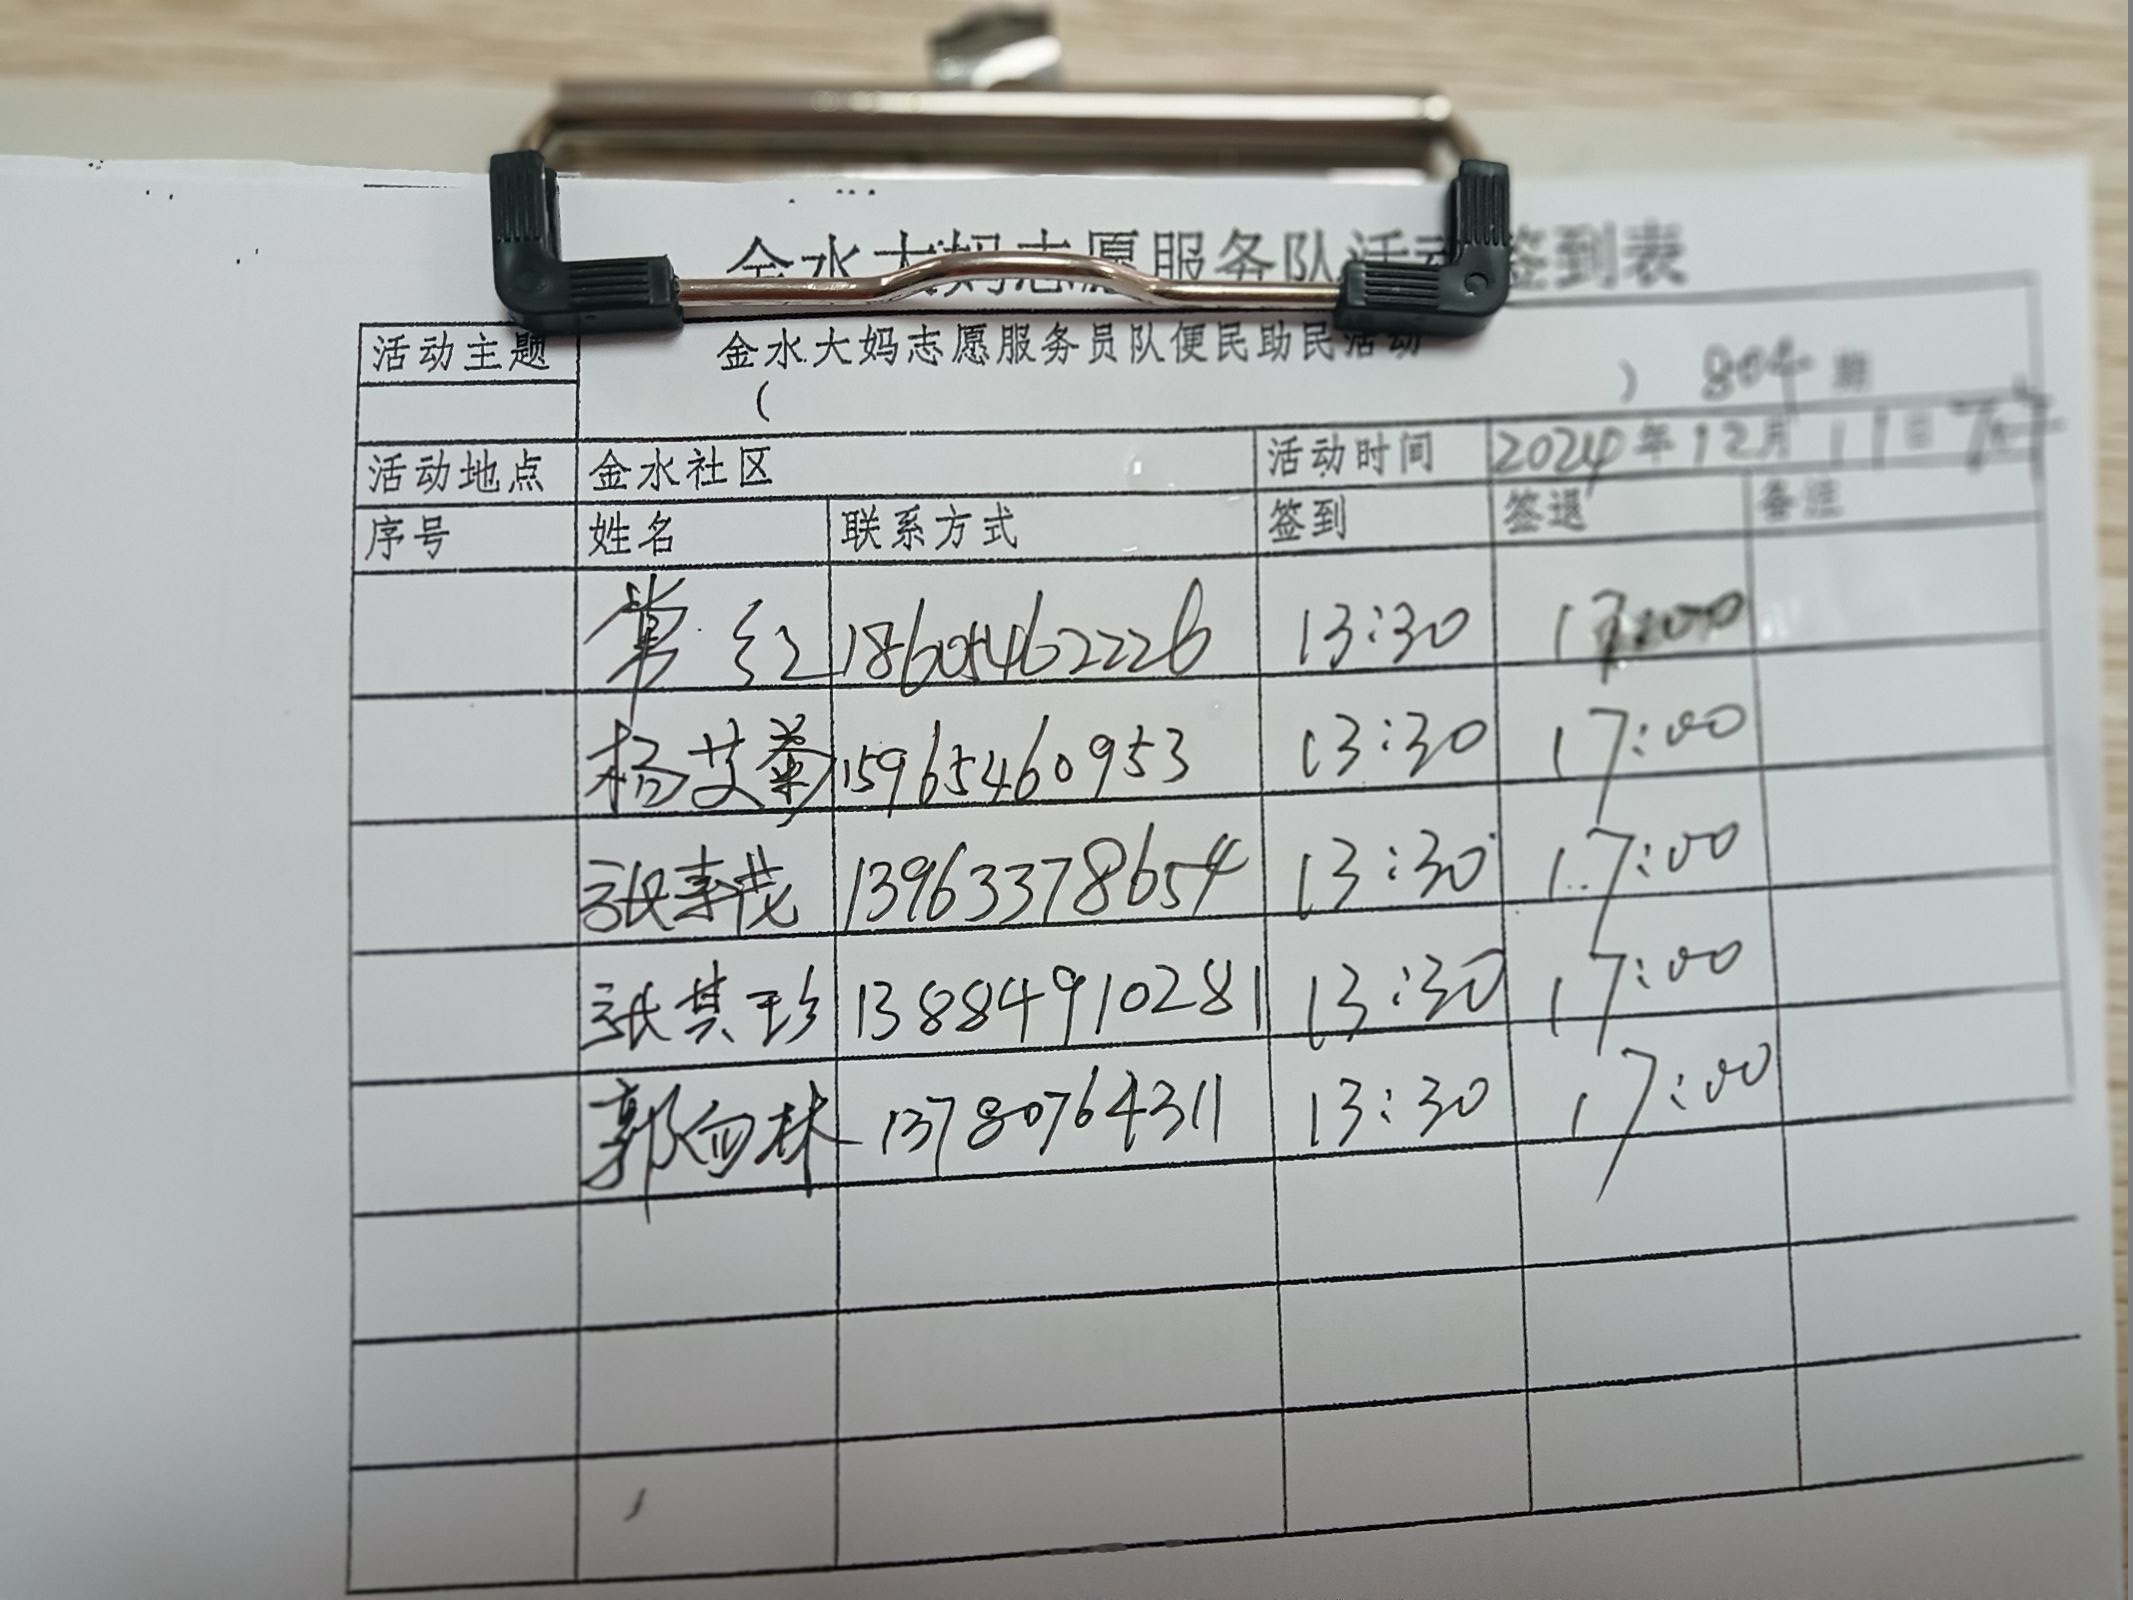 金水大妈志愿服务队活动签到表
活动主题 金水大妈志愿服务员队便民助民活动
( ) 804期
活动地点 金水社区 活动时间 2024年12月11日下午
序号 姓名 联系方式 签到 签退 备注
常红 18605462226 13:30 17:00
杨艾菊 15965460953 13:30 17:00
张寿茂 13963378654 13:30 17:00
张其珍 13884910281 13:30 17:00
郭向林 13780764311 13:30 17:00